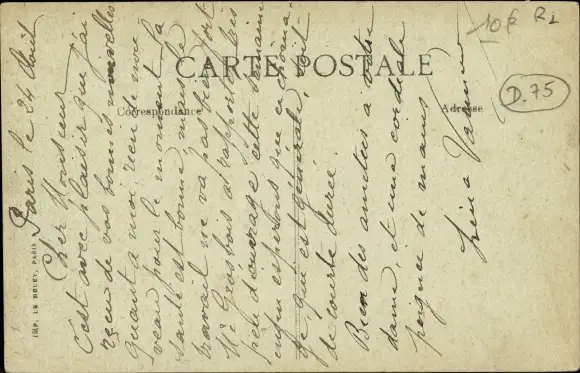 CARTE POSTALE
Correspondance
Adresse
IMP. LE DELEY, PARIS
10 F
D.75
Paris le 24 Août
Cher Monsieur
C'est avec plaisir que j'ai
reçu de vos bonnes nouvelles
Quant à moi, rien de nou
veau pour le moment la
santé est bonne mais le
travail ne va pas bien fort
Mr Grosbois a rapporté très
peu d'ouvrage cette semaine
enfin espérons que ce chôma-
ge qui est générale, soit
de courte durée.
Bien des amitiés à votre
dame, et une cordiale
poignée de mains